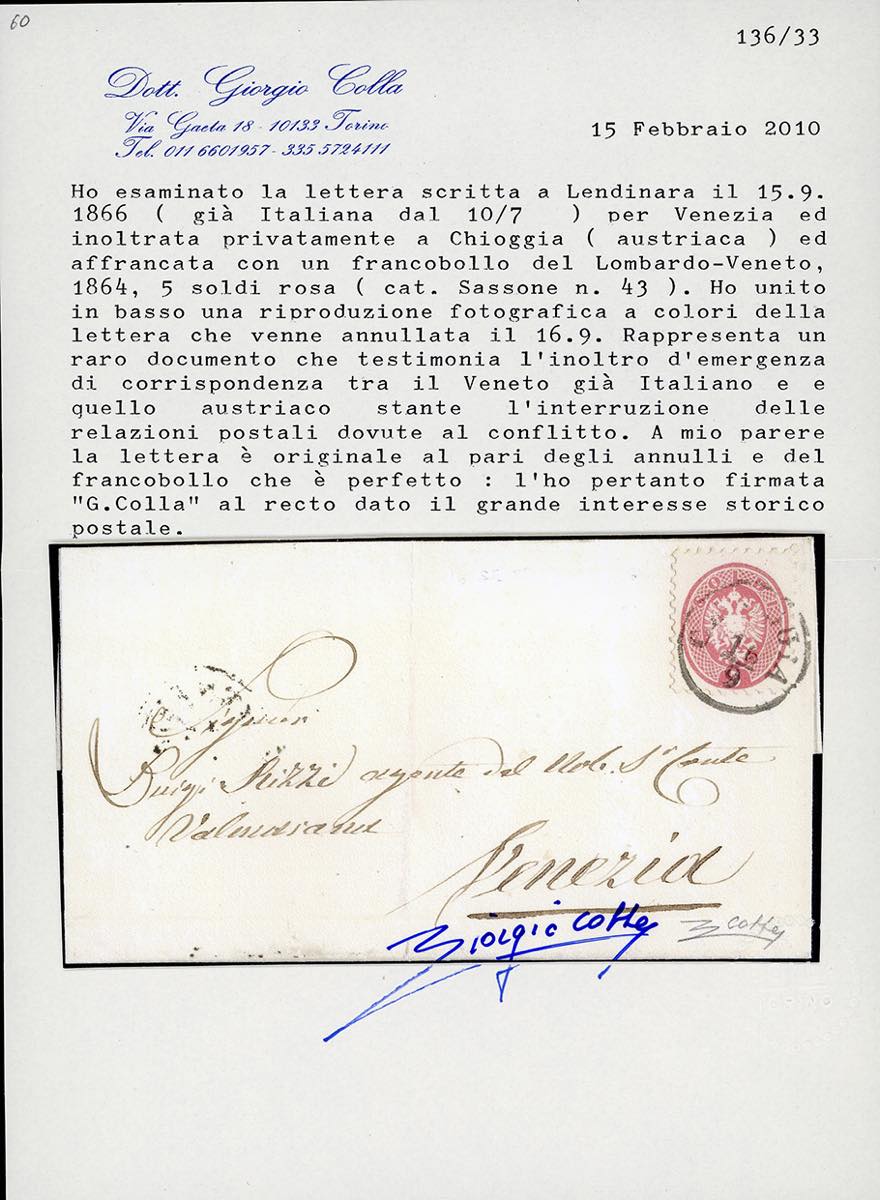 60
136/33
Dott. Giorgio Colla
Via Gaeta 18 - 10133 Torino
Tel. 011 6601957 - 335 5724111
15 Febbraio 2010
Ho esaminato la lettera scritta a Lendinara il 15.9.
1866 ( già Italiana dal 10/7 ) per Venezia ed
inoltrata privatamente a Chioggia ( austriaca ) ed
affrancata con un francobollo del Lombardo-Veneto,
1864, 5 soldi rosa ( cat. Sassone n. 43 ). Ho unito
in basso una riproduzione fotografica a colori della
lettera che venne annullata il 16.9. Rappresenta un
raro documento che testimonia l'inoltro d'emergenza
di corrispondenza tra il Veneto già Italiano e e
quello austriaco stante l'interruzione delle
relazioni postali dovute al conflitto. A mio parere
la lettera è originale al pari degli annulli e del
francobollo che è perfetto : l'ho pertanto firmata
"G.Colla" al recto dato il grande interesse storico
postale.
16
9
Luigi Rizzi agente del Nob. Sr Conte
Valmarana
Venezia
Giorgio Colla
G Colla